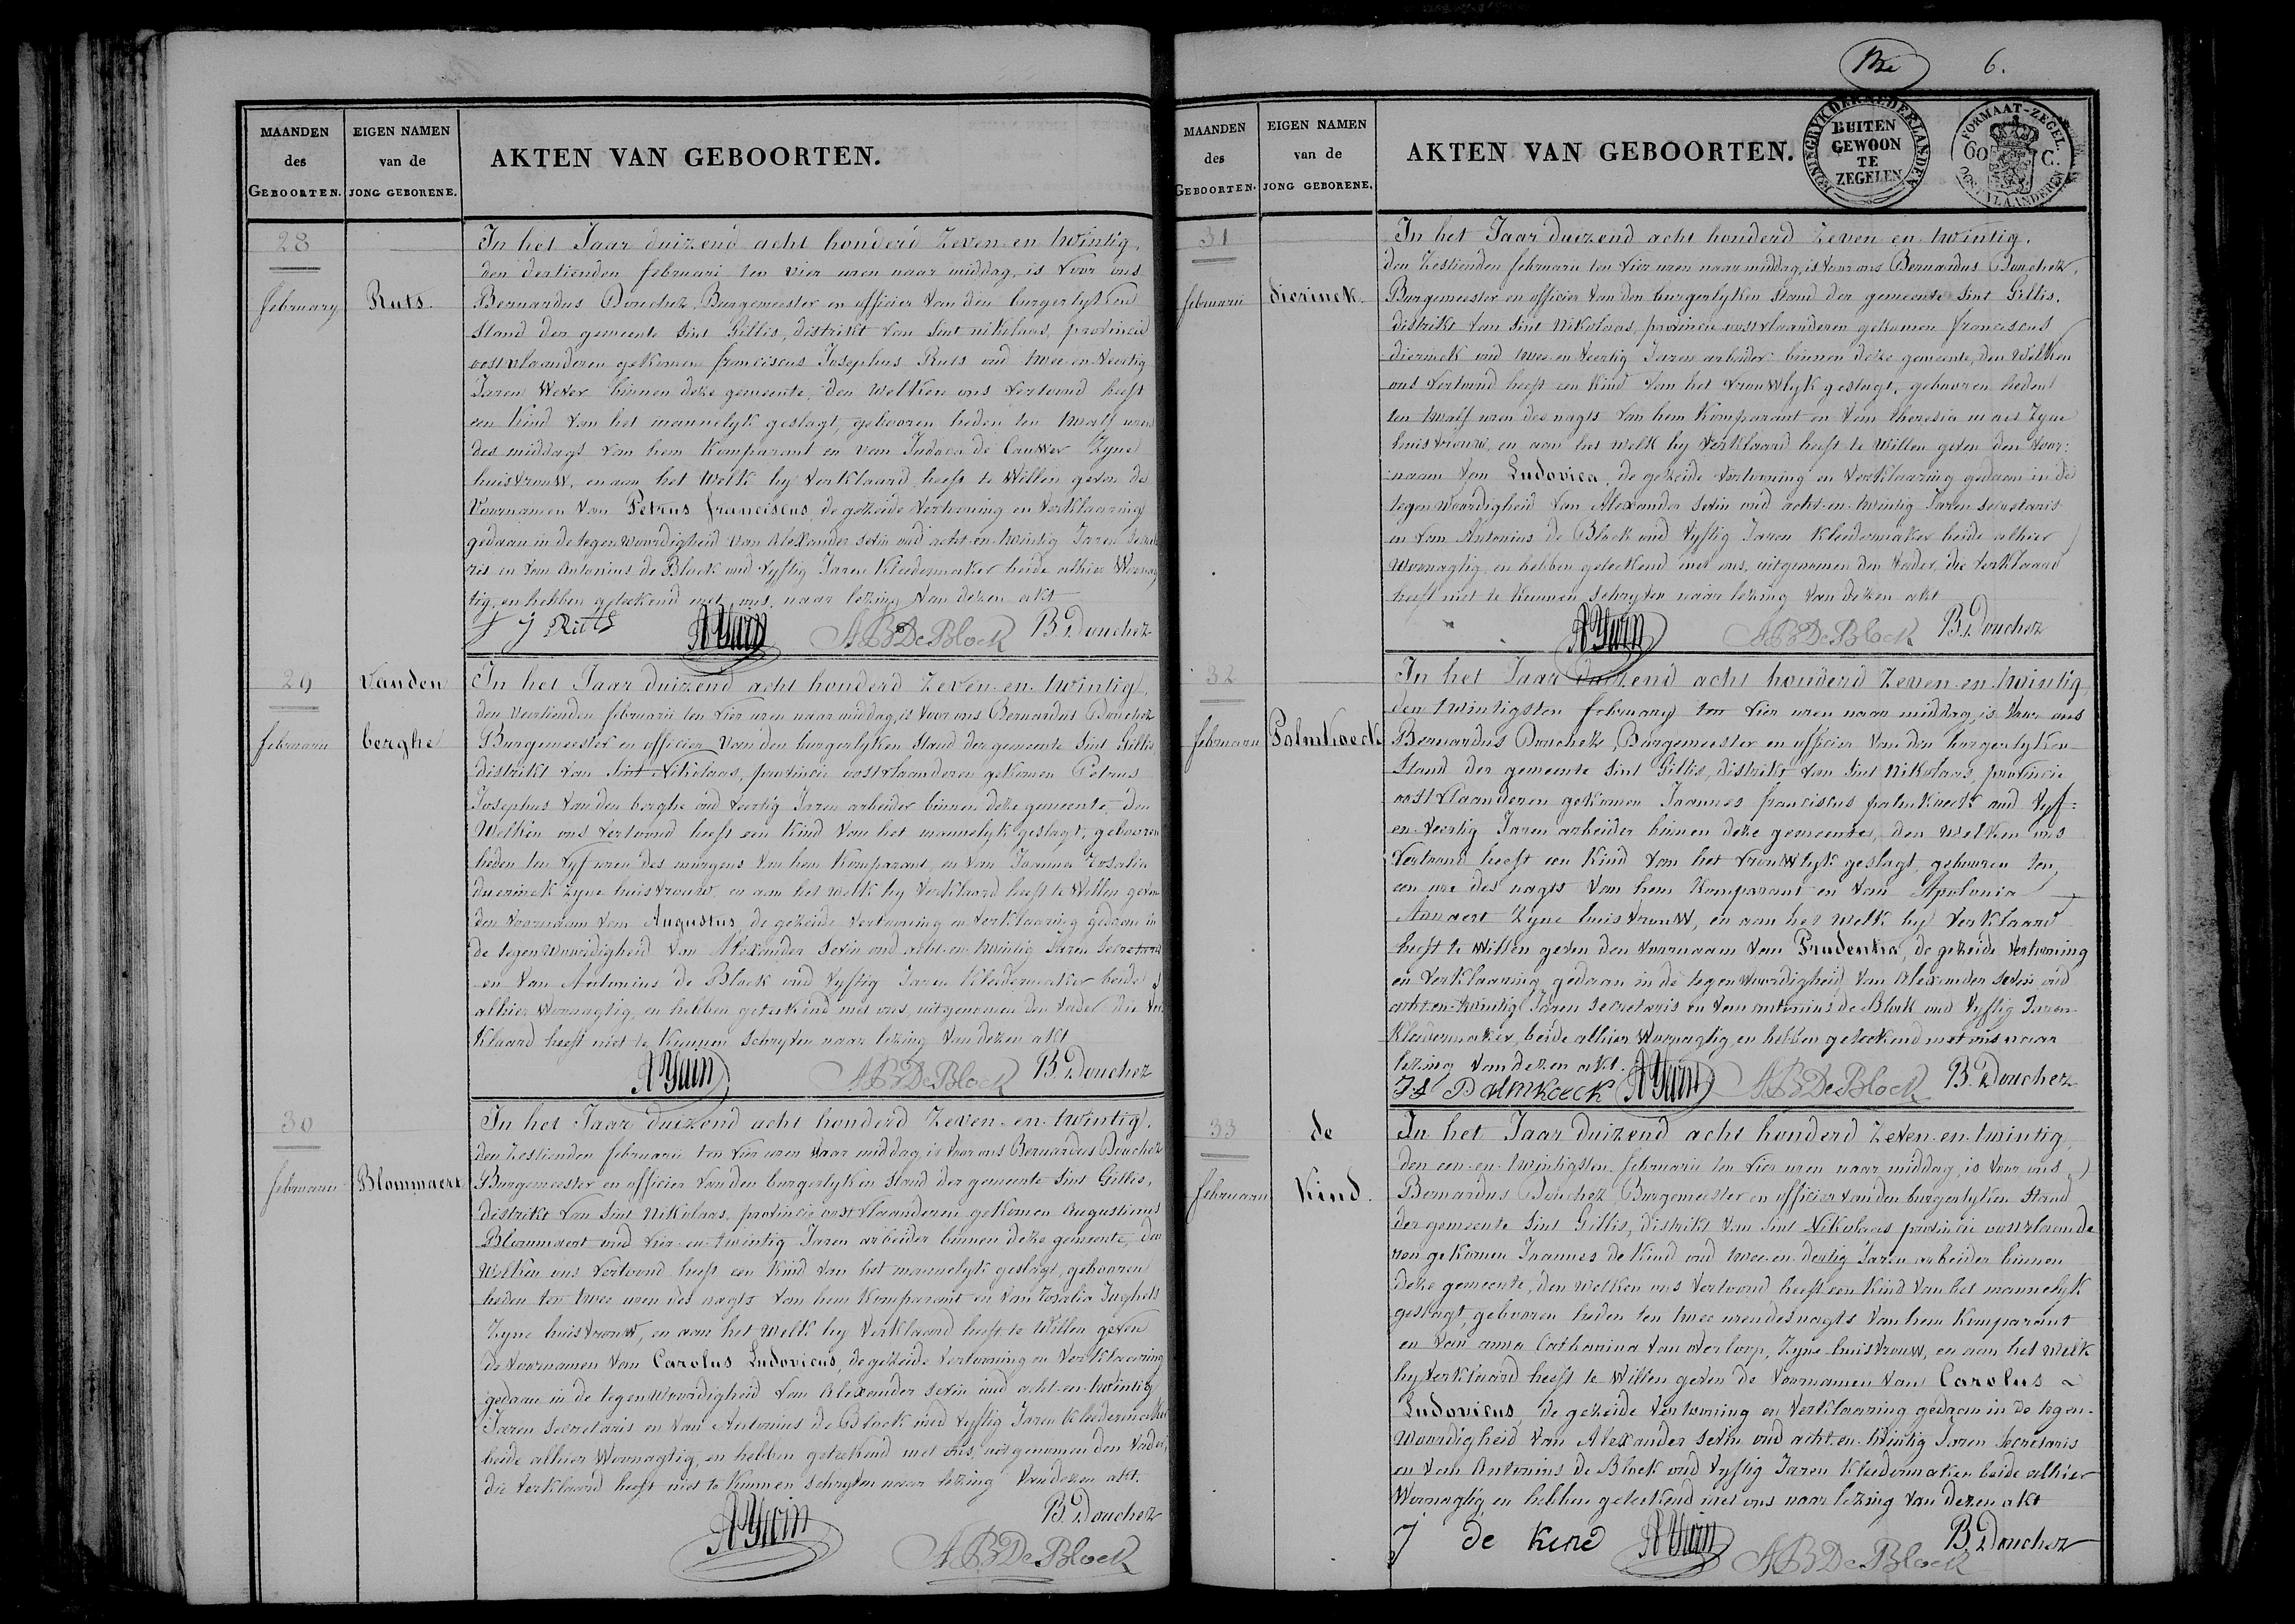 MAANDEN
des
GEBOORTEN.
EIGEN NAMEN
van de
JONG GEBORENE.
AKTEN VAN GEBOORTEN.
28
february
Ruts.
In het Jaar duizend acht honderd Zeven-en-twintig,
den dertienden februari ten vier uren naar middag, is voor ons
Bernardus Douchez, Burgemeester en officier van den burgerlyken
stand der gemeente Sint Gillis, distrikt van Sint nikolaas, provincie
oostvlaanderen gekomen franciscus Josephus Ruts oud twee-en-veertig
Jaren Wever binnen deze gemeente, den welken ons vertoond heeft
een kind van het mannelyk geslagt, gebooren heden ten twalf uren
des middags van hem komparant en van Judoca de Cauwer Zyne
huisvrouw, en aan het welk hy verklaard heeft te willen geven de
Voornamen van Petrus franciscus, de gezeide vertooning en verklaaring
gedaan in de tegenwoordigheid van Alexander sevin oud acht-en-twintig Jaren secreta
ris en van Antonius de Block oud vyftig Jaren kleedermaker beide alhier Woonag
tig, en hebben geteekend met ons, naar lezing van dezen akt
f j Ruts
A B De Block
B. Douchez
29
februarii
vanden
berghe
In het Jaar duizend acht honderd Zeven-en-twintig,
den veertienden februarii ten vier uren naar middag, is voor ons Bernardus Douchez
Burgemeester en officier van den burgerlyken stand der gemeente Sint Gillis
distrikt van Sint Nikolaas, provincie oostvlaanderen gekomen Petrus
Josephus van den berghe oud veertig Jaren arbeider binnen deze gemeente, den
Welken ons vertoond heeft een kind van het mannelyk geslagt, gebooren
heden ten vyf uren des morgens van hem komparant, en van Joanna rosalia
duerinck zyne huisvrouw, en aan het welk hy verklaard heeft te willen geven
den voornaam van Augustus, de gezeide vertooning en verklaaring gedaan in
de tegenwoordigheid van Alexander sevin oud acht-en-twintig Jaren secretaris
en van Antonius de Block oud vyftig Jaren kleedermaker beide
alhier woonagtig, en hebben geteekend met ons, uitgenomen den vader die ver
klaard heeft niet te kunnen schryven naar lezing van dezen akt
A B De Block
B. Douchez
30
februarii
Blommaert
In het Jaar duizend acht honderd Zeven-en-twintig,
den zestienden februarii ten vier uren naar middag, is voor ons Bernardus Douchez
Burgemeester en officier van den burgerlyken stand der gemeente Sint Gillis,
distrikt van Sint Nikolaas, provincie oostvlaanderen gekomen Augustinus
Blommaert oud vier-en-twintig Jaren arbeider binnen deze gemeente, den
Welken ons vertoond heeft een kind van het mannelyk geslagt, gebooren
heden ten twee uren des nagts van hem komparant en van rosalia Inghels
Zyne huisvrouw, en aan het welk hy verklaard heeft te willen geven
de voornamen van Carolus Ludovicus, de gezeide vertooning en verklaaring
gedaan in de tegenwoordigheid van Alexander sevin oud acht-en-twintig
Jaren secretaris en van Antonius de Block oud vyftig Jaren kleedermaker
beide alhier woonagtig, en hebben geteekend met ons, uitgenomen den vader,
die verklaard heeft niet te kunnen schryven naar lezing van dezen akt.
B. Douchez
A B De Block
6.
MAANDEN
des
GEBOORTEN.
EIGEN NAMEN
van de
JONG GEBORENE.
AKTEN VAN GEBOORTEN.
KONINGRYK DER NEDERLANDEN
BUITEN
GEWOON
TE
ZEGELEN
FORMAAT-ZEGEL.
60 C.
OOST VLAANDEREN
31
februarii
dierinck.
In het Jaar duizend acht honderd zeven-en-twintig,
den Zestienden februarii ten vier uren naar middag, is voor ons Bernardus Douchez,
Burgemeester en officier van den burgerlyken stand der gemeente Sint Gillis,
distrikt van Sint Nikolaas, provincie oostvlaanderen gekomen franciscus
dierinck oud twee-en-veertig Jaren arbeider binnen deze gemeente, den Welken
ons vertoond heeft een kind van het vrouwlyk geslagt, gebooren heden
ten twalf uren des nagts van hem komparant en van theresia maes Zyne
huisvrouw, en aan het welk hy verklaard heeft te willen geven den voor:
naam van Ludovica, de gezeide vertooning en verklaaring gedaan in de
tegenwoordigheid van Alexander sevin oud acht-en-twintig Jaren secretaris
en van Antonius de Block oud vyftig Jaren kleedermaker beide alhier
woonagtig, en hebben geteekend met ons, uitgenomen den vader, die verklaard
heeft niet te kunnen schryven naar lezing van dezen akt
A B De Block
B. Douchez
32
februarii
Palmkoeck
In het Jaar duizend acht honderd Zeven-en-twintig
den twintigsten february ten vier uren naar middag, is voor ons
Bernardus Douchez, Burgemeester en officier van den burgerlyken
Stand der gemeente Sint Gillis, distrikt van Sint Nikolaas, provincie
oostvlaanderen gekomen Joannes franciscus palmkoeck oud vyf=
en-veertig Jaren arbeider binnen deze gemeente, den welken ons
vertoond heeft een kind van het vrouwlyk geslagt, gebooren ten
een ure des nagts van hem komparant en van Apolonia
Annaert Zyne huisvrouw, en aan het welk hy verklaard
heeft te willen geven den voornaam van Prudentia, de gezeide vertooning
en verklaaring gedaan in de tegenwoordigheid van Alexander sevin oud
acht-en-twintig Jaren secretaris en van antonius de Block oud vyftig Jaren
kleedermaker, beide alhier woonagtig, en hebben geteekend met ons naar
lezing van dezen akt.
J f Palmkoeck
A B De Block
B. Douchez
33
februarii
de
Kind.
In het Jaar duizend acht honderd Zeven-en-twintig,
den een-en-twintigsten februarii ten vier uren naar middag, is voor ons
Bernardus Douchez Burgemeester en officier van den burgerlyken Stand
der gemeente Sint Gillis, distrikt van Sint Nikolaas provincie oostvlaande
ren gekomen Joannes de Kind oud twee-en-dertig Jaren arbeider binnen
deze gemeente, den welken ons vertoond heeft een kind van het mannelyk
geslagt, gebooren heden ten twee uren des nagts van hem komparant
en van anna Catharina van overloop, Zyne huisvrouw, en aan het welk
hy verklaard heeft te willen geven de voornamen van Carolus
Ludovicus, de gezeide vertooning en verklaaring gedaan in de tegen-
woordigheid van Alexander sevin oud acht-en-twintig Jaren secretaris
en van Antonius de Block oud vyftig Jaren kleedermaker beide alhier
Woonagtig, en hebben geteekend met ons naar lezing van dezen akt
J de Kind
A B De Block
B. Douchez